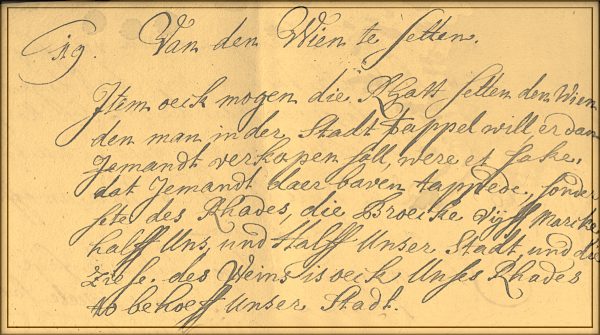 19. Van den Wien te setten.
Item oeck mogen die Rhatt setten den Wien
den man in der Stadt tappel will, er dan
Jemandt verkopen sall, were et sake,
dat Jemandt daer baven tappede, sonder
sete des Rhades, die Broecke vijff Marcke
halff Uns, und halff Unser Stadt, und die
Ziese des Weins is oeck Unses Rhades
to behoeff Unser Stadt.